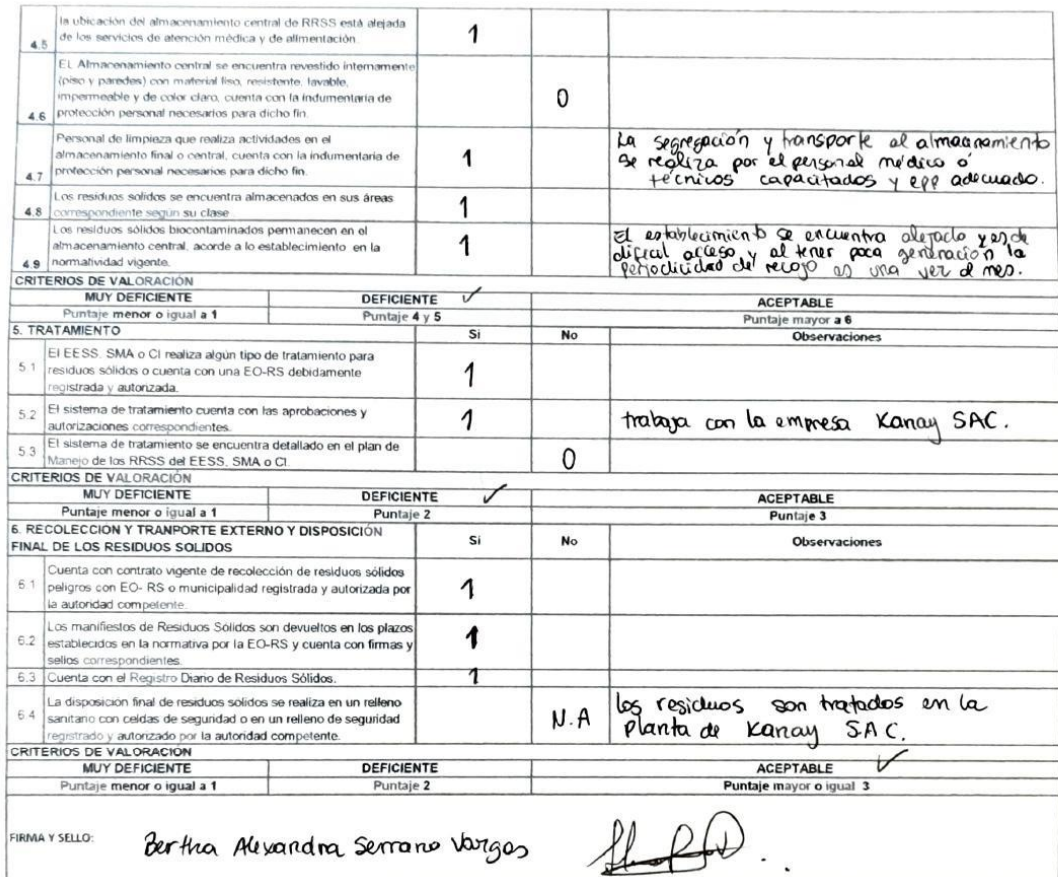 4.5 la ubicación del almacenamiento central de RRSS está alejada
de los servicios de atención médica y de alimentación. 1
EL Almacenamiento central se encuentra revestido internamente
(piso y paredes) con material liso, resistente, lavable,
impermeable y de color claro, cuenta con la indumentaria de
4.6 protección personal necesarios para dicho fin. 0
Personal de limpieza que realiza actividades en el
almacenamiento final o central, cuenta con la indumentaria de
4.7 protección personal necesarios para dicho fin. 1
La segregación y transporte al almacenamiento
se realiza por el personal médico ó
técnicos capacitados y epp adecuado.
Los residuos solidos se encuentra almacenados en sus áreas
4.8 correspondiente según su clase 1
Los residuos sólidos biocontaminados permanecen en el
almacenamiento central, acorde a lo establecimiento en la
4.9 normatividad vigente. 1
El establecimiento se encuentra alejado y es de
dificil acceso y al tener poca generación la
periodicidad del recojo es una vez al mes.
CRITERIOS DE VALORACIÓN
MUY DEFICIENTE DEFICIENTE ✓ ACEPTABLE
Puntaje menor o igual a 1 Puntaje 4 y 5 Puntaje mayor a 6
5. TRATAMIENTO Si No Observaciones
El EESS. SMA o CI realiza algún tipo de tratamiento para
5.1 residuos sólidos o cuenta con una EO-RS debidamente
registrada y autorizada. 1
5.2 El sistema de tratamiento cuenta con las aprobaciones y
autorizaciones correspondientes. 1 trabaja con la empresa Kanay SAC.
5.3 El sistema de tratamiento se encuentra detallado en el plan de
Manejo de los RRSS del EESS. SMA o CI. 0
CRITERIOS DE VALORACIÓN
MUY DEFICIENTE DEFICIENTE ✓ ACEPTABLE
Puntaje menor o igual a 1 Puntaje 2 Puntaje 3
6. RECOLECCION Y TRANPORTE EXTERNO Y DISPOSICIÓN
FINAL DE LOS RESIDUOS SOLIDOS Si No Observaciones
Cuenta con contrato vigente de recolección de residuos sólidos
6.1 peligros con EO- RS o municipalidad registrada y autorizada por
la autoridad competente. 1
Los manifiestos de Residuos Sólidos son devueltos en los plazos
6.2 establecidos en la normativa por la EO-RS y cuenta con firmas y
sellos correspondientes. 1
6.3 Cuenta con el Registro Diario de Residuos Sólidos. 1
La disposición final de residuos sólidos se realiza en un relleno
6.4 sanitario con celdas de seguridad o en un relleno de seguridad
registrado y autorizado por la autoridad competente. N.A
los residuos son tratados en la
Planta de Kanay S.A C.
CRITERIOS DE VALORACIÓN
MUY DEFICIENTE DEFICIENTE ACEPTABLE ✓
Puntaje menor o igual a 1 Puntaje 2 Puntaje mayor o igual 3
FIRMA Y SELLO: Bertha Alexandra Serrano Vargas